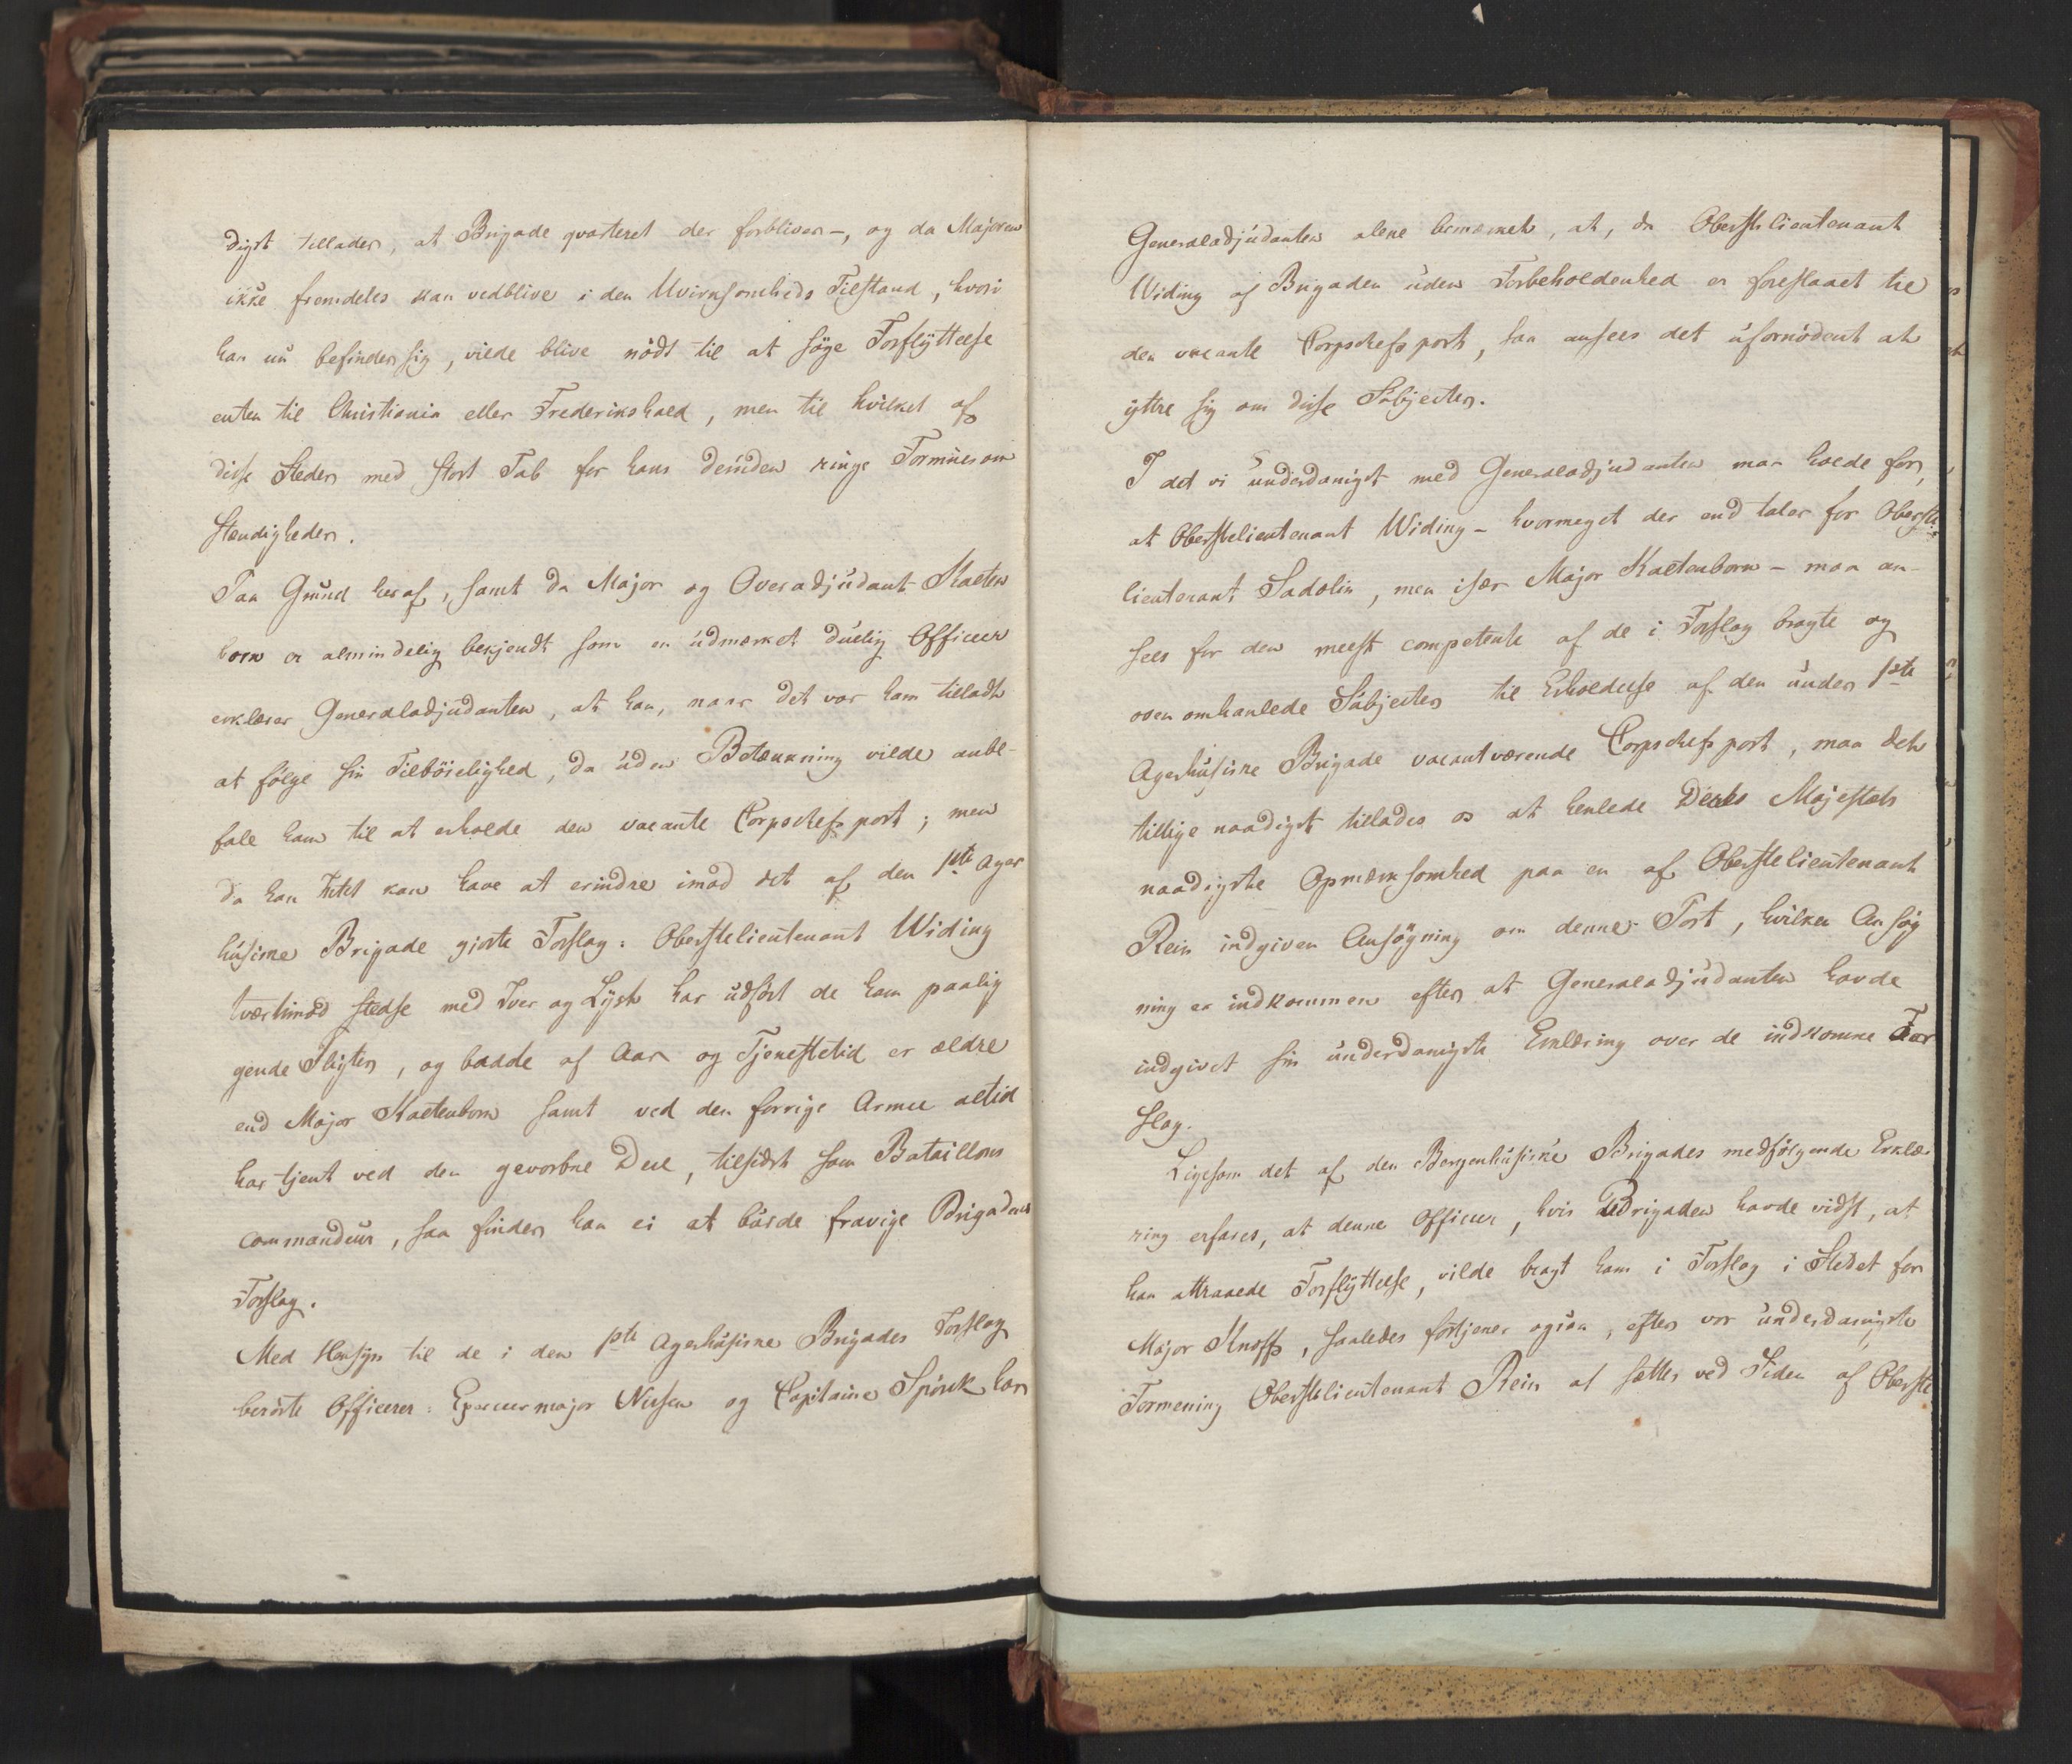 digst tillader, at Brigade qvarteret der forbliver -, og da Majoren
ikke fremdeles kan vedblive i den Uvirksomheds Tilstand, hvori
han nu befinder sig, vilde blive nödt til at söge Forflyttelse
enten til Christiania eller Frederikshald, men til hvilket af
disse Steder med stort Tab for hans desuden ringe Formues om
stændigheder.
Paa Grund heraf, samt da Major og Overadjudant Kalten
born er almindelig bekjendt som en udmærket duelig Officeer
erklærer Generaladjudanten, at han, naar det var ham tilladt
at fölge sin Tilböielighed, da uden Betænkning vilde anbe-
fale ham til at erholde den vacante Corpschefs post; men
da han Intet kan have at erindre imod det af den 1ste Ager
husiske Brigade gjorte Forslag: Oberstelieutenant Widing
tvertimod stedse med Iver og Lyst har udfört de ham paalig
gende Pligter, og baade af Aar og Tjenestetid er ældre
end Major Kaltenborn samt ved den forrige Armee altid
har tjent ved den gevorbne Deel, tilsidst som Bataillons
commandeur, saa finder han ei at burde fravige Brigadens
Forslag.
Med Hensyn til de i den 1ste Agerhusiske Brigades Forslag
berörte Officerer: Exerceermajor Nissen og Capitaine Spörck har
Generaladjudanten alene bemærket, at, da Oberstelieutenant
Widing af Brigaden uden Forbeholdenhed er foreslaaet til
den vacante Corpschefs post, saa ansees det ufornödent at
yttre sig om disse Subjecter.
I det vi underdanigst med Generaladjudanten maa holde for,
at Oberstelieutenant Widing - hvormeget der end taler for Oberste-
lieutenant Sadolin, men især Major Kaltenborn - maa an-
sees for den meest competente af de i Forslag bragte og
ovenomhandlede Subjecter til Erholdelse af den under 1ste
Agerhusiske Brigade vacantværende Corpschefs post, maa det
tillige naadigst tillades os at henlede Deres Majestæts
naadigste Opmærksomhed paa en af Oberstelieutenant
Rein indgiven Ansögning om denne Post, hvilken Ansög
ning er indkommen efter at Generaladjudanten havde
indgivet sin underdanigste Erklæring over de indkomne For
slag.
Ligesom det af den Bergenhusiske Brigades medfölgende Erklæ-
ring erfares, at denne Officeer, hvis Brigaden havde vidst, at
han attraaede Forflyttelse, vilde bragt ham i Forslag i Stedet for
Major Knoff, saaledes fortjener ogsaa, efter vor underdanigste
Formening Oberstelieutenant Rein at sættes ved Siden af Oberste